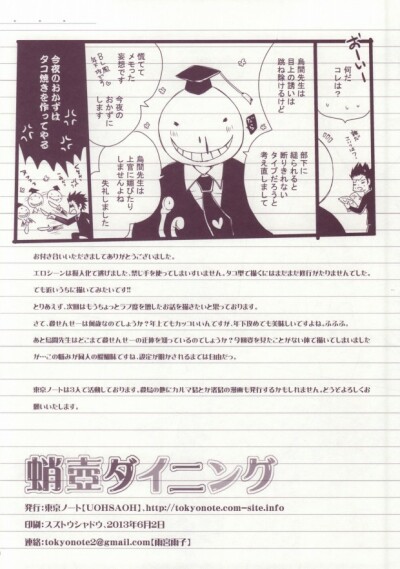 おーいー
何だ
コレは?
烏間先生は
目上の誘いは
跳ね除けるけど
部下に
縋られると
断りきれない
タイプだろうと
考え直しまして
慌てて
メモった
妄想です
今夜の
おかずに
します
烏間先生は
上官に媚びたり
しませんよね
失礼しました
今夜のおかずは
タコ焼きを作ってやる
お付き合いいただきましてありがとうございました。
エロシーンは擬人化で逃げました、禁じ手を使ってしまいすいません。タコ型で描くにはまだまだ修行がたりませんでした。
でも近いうちに描いてみたいです!!
とりあえず、次回はもうちょっとラブ度を増したお話を描きたいと思っております。
さて、殺せんせーは何歳なのでしょうか?年上でもカッコいいんですが、年下攻めでも美味しいですよね、ふふふ。
あと烏間先生はどこまで殺せんせーの正体を知っているのでしょうか?今回姿を見たことがない体で描いてしまいました
が…この悩みが同人の醍醐味ですね、設定が明かされるまでは自由だっ。
東京ノートは3人で活動しております。殺烏の他にカルマ烏とか渚烏の漫画も発行するかもしれません。どうぞよろしくお
願いいたします。
蛸壺ダイニング
発行:東京ノート【UOHSAOH】.http://tokyonote.com-site.info
印刷:スズトウシャドウ、2013年6月2日
連絡:tokyonote2@gmail.com【雨宮雨子】